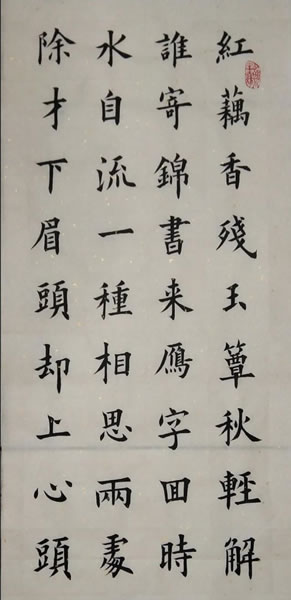 紅藕香殘玉簟秋輕解
誰寄錦書来鴈字回時
水自流一種相思兩處
除才下眉頭却上心頭